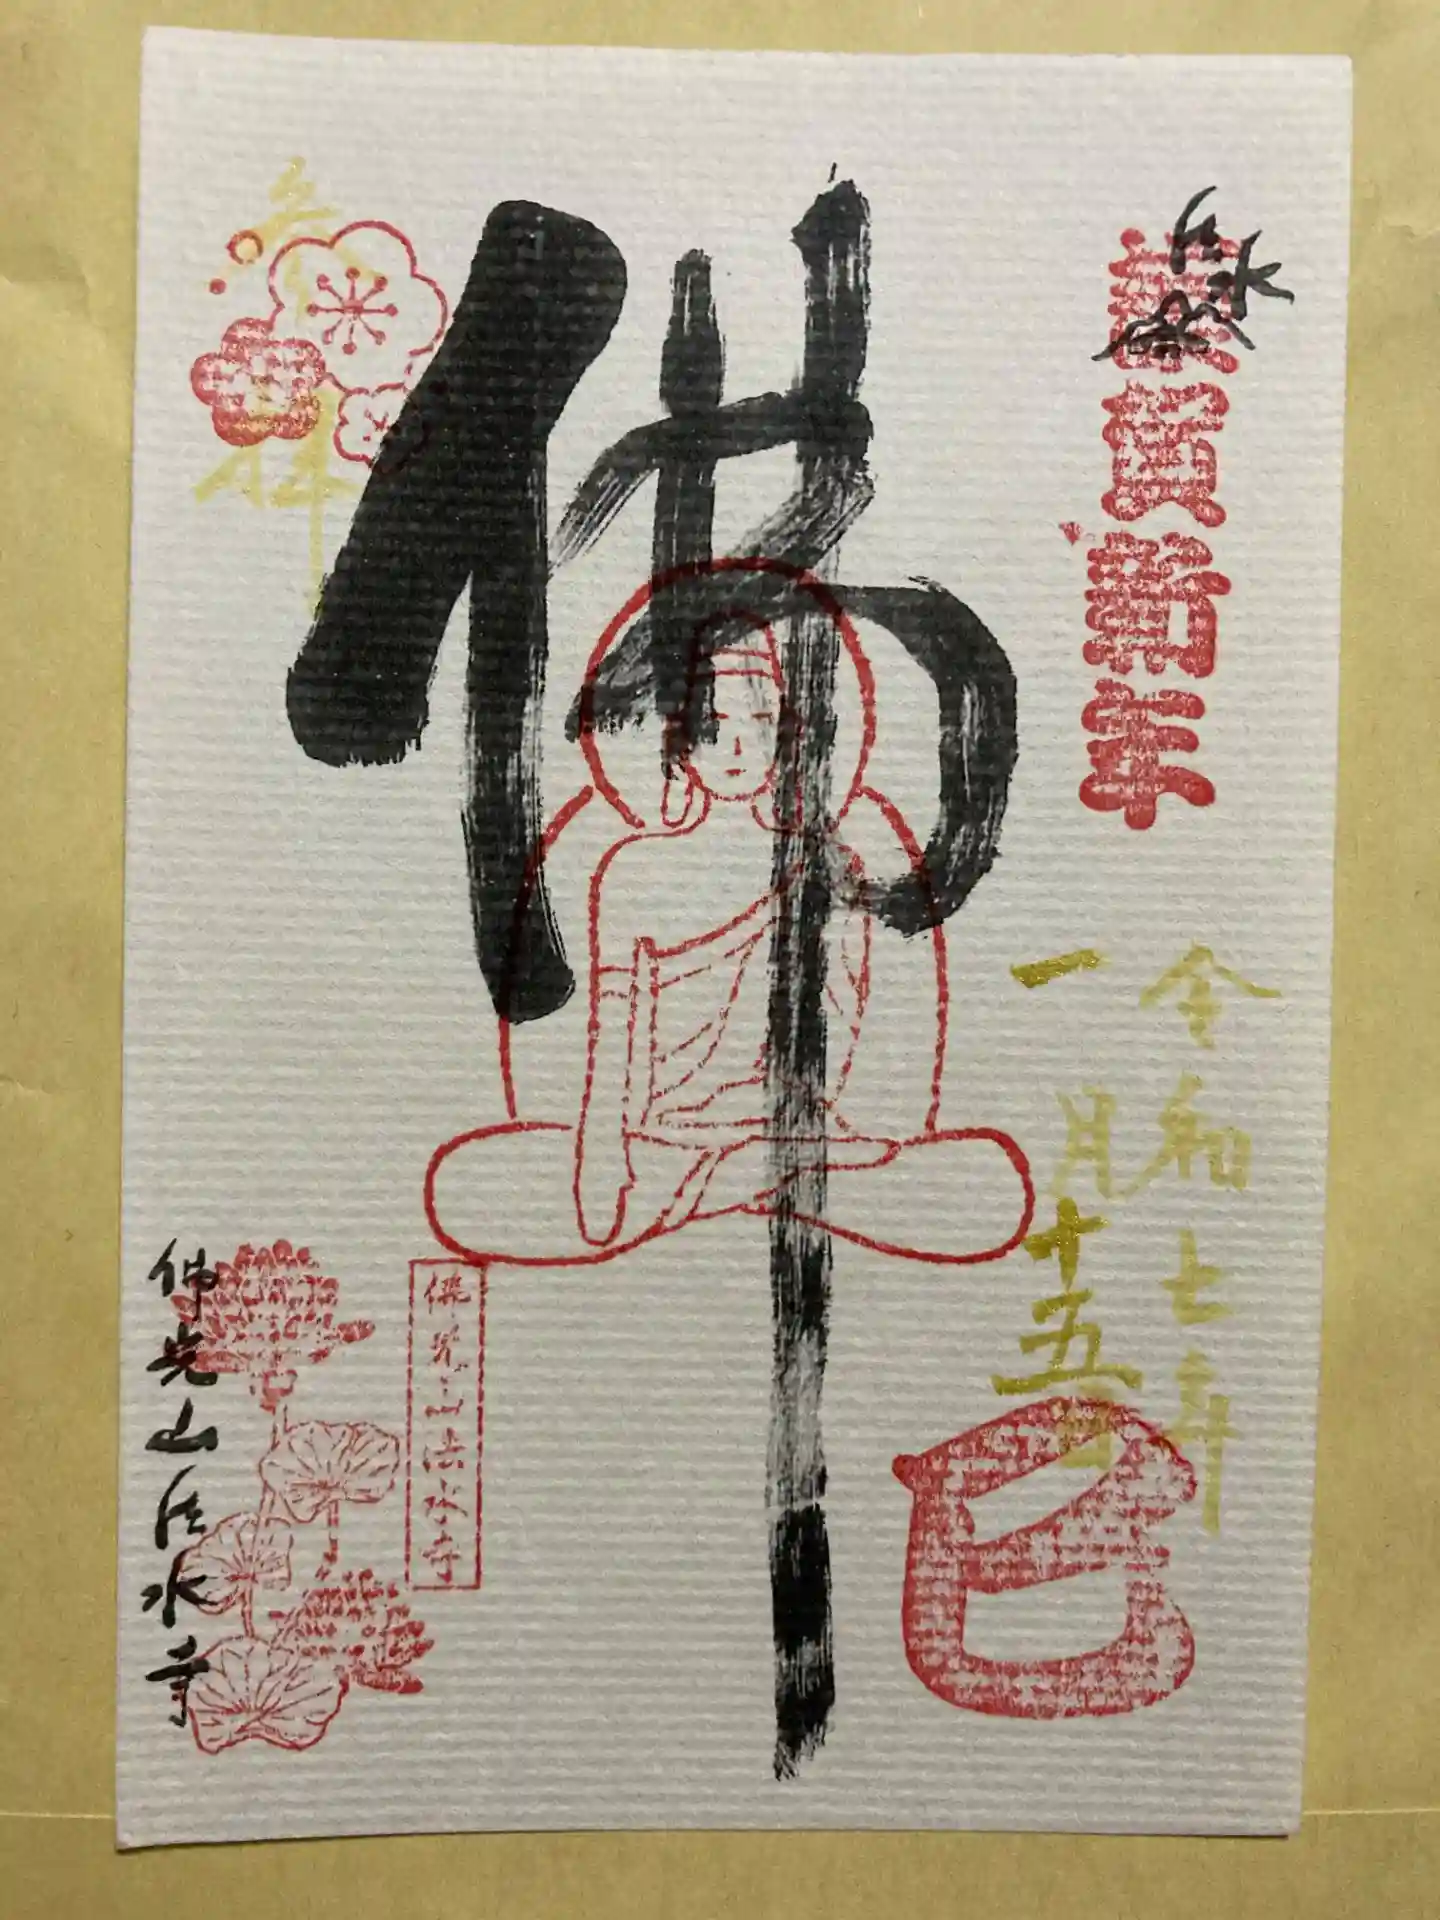 謹賀新年
令和七年
一月十五日
巳
佛
佛光山法水寺
参拝
佛光山法水寺